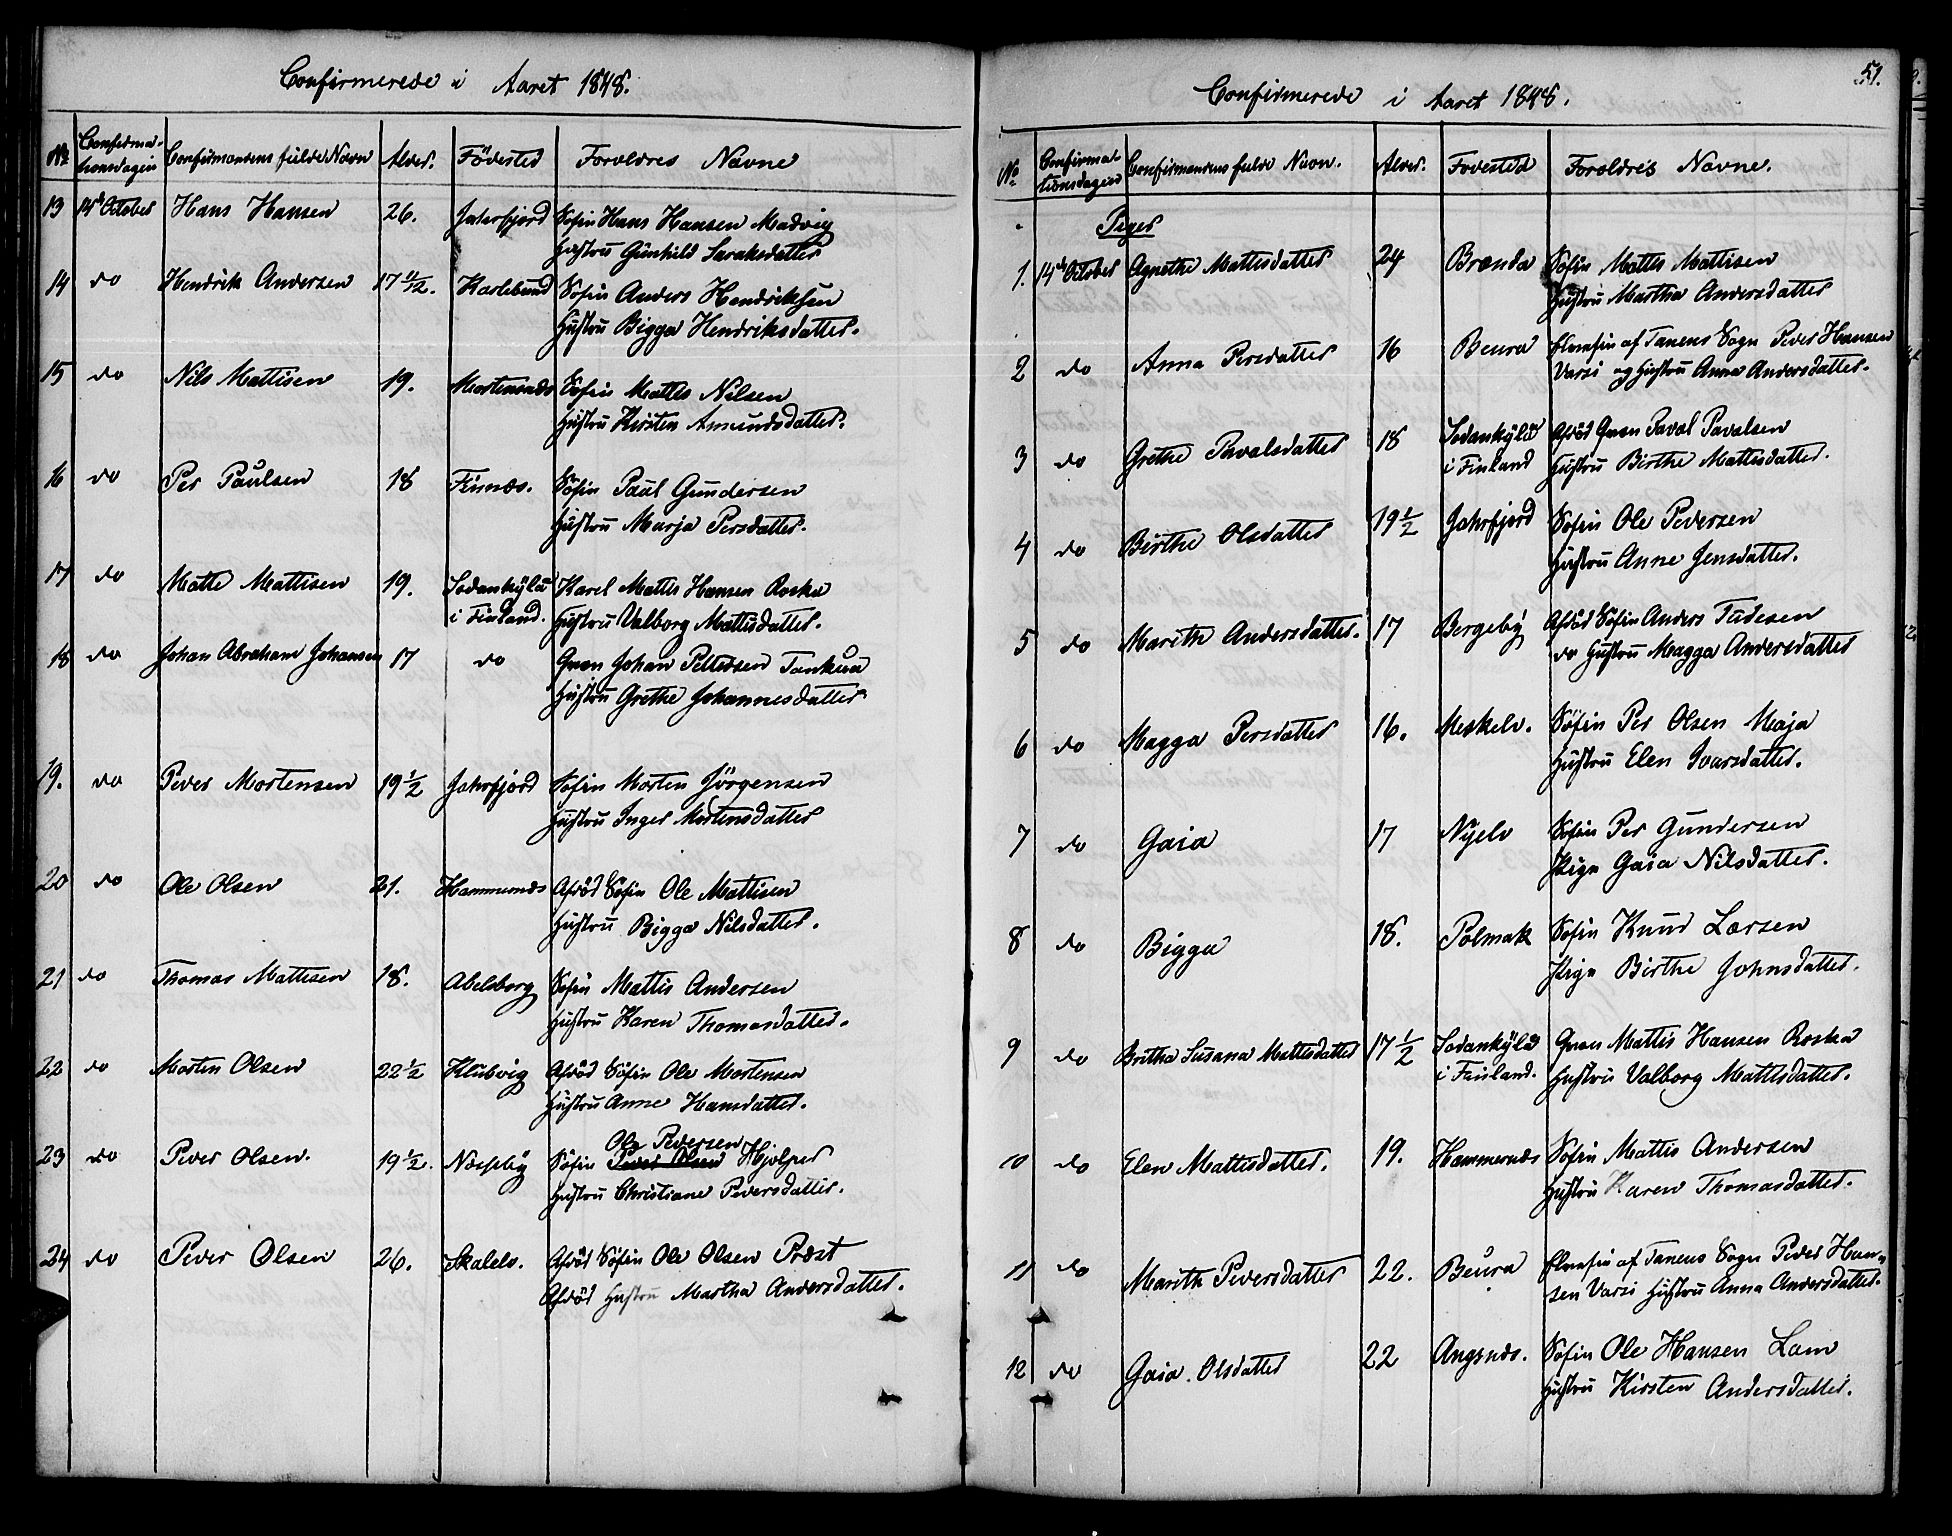 Confirmerede i Aaret 1848.
No Confirmationsdagen Confirmandens fulde Navn Alder. Födested Foreldres Navne
13 14de October Hans Hansen 26. Jaterfjord Söfin Hans Hansen Madvig
Hustru Gunhild Saraksdatter
14 do Hendrik Andersen 17 1/2. Karlebund Söfin Anders Hendriksen
Hustru Bigga Hendriksdatter.
15 do Nils Mattisen 19. Mortensnæs Söfin Mattis Nilsen
Hustru Kirsten Amundsdatter.
16 do Per Paulsen 18 Finnæs. Söfin Paul Gundersen
Hustru Marja Persdatter.
17 do Matte Mattisen 19. Sodankylä Karel Mattis Hansen Roska
i Finland. Hustru Valborg Mattisdatter.
18 do Johan Abraham Johansen 17 do Qvæn Johan Pettersen Tankua
Hustru Grethe Johannesdatter
19. do Peder Mortensen 19 1/2 Jahrfjord Söfin Morten Jörgensen
Hustru Inger Mortensdatter
20 do Ole Olsen 21. Hammernæs Afdöd Söfin Ole Mattisen
Hustru Bigga Nilsdatter.
21 do Thomas Mattisen 18. Abelsborg Söfin Mattis Andersen
Hustru Karen Thomasdatter.
22 do Morten Olsen 22 1/2 Klubvig Afdöd Söfin Ole Mortensen
Hustru Anne Hansdatter.
Ole Pedersen
23 do Peder Olsen. 19 1/2. Næsseby Söfin Peder Olsen Hjelper
Hustru Christiane Pedersdatter.
24 do Peder Olsen 26. Skalelv. Afdöd Söfin Ole Olsen Præst
Afdöd Hustru Martha Andersdatter.
51.
Confirmerede i Aaret 1848.
No Confirmationsdagen Confirmandens fulde Navn. Alder. Fodested Foreldres Navne.
Piger
1. 14de October Agnethe Mattisdatter 24 Brænda Söfin Mattis Mattisen
Hustru Martha Andersdatter
2 do Anna Persdatter 16 Beura Elvefin af Tanens Sogn Peder Hansen
Varsi og Hustru Anna Andersdatter.
3 do Grethe Pavalsdatter 18 Sodankylä Afdöd Qvæn Paval Pavalsen
i Finland Hustru Birthe Mattisdatter.
4 do Birthe Olsdatter 19 1/2 Jahrfjord Söfin Ole Pedersen
Hustru Anne Jensdatter.
5 do Marith Andersdatter. 17 Bergeby Afdöd Söfin Anders Tudesen
do Hustru Magga Andersdatter
6 do Magga Persdatter 16. Meskelv. Söfin Per Olsen Maja
Hustru Elen Ivarsdatter.
7 do Gaia 17 Nyelv Söfin Per Gundersen
Pige Gaia Nilsdatter.
8 do Bigga 18. Polmak Söfin Knud Larsen
Pige Birthe Johnsdatter.
9 do Britha Susana Mattisdatter 17 1/2 Sodankylä Qvæn Mattis Hansen Roska
i Finland. Hustru Valborg Mattisdatter.
10 do Elen Mattisdatter. 19. Hammernæs Söfin Mattis Andersen
Hustru Karen Thomasdatter.
11 do Marith Pedersdatter 22. Beura Elvefin af Tanens Sogn Peder Han-
sen Varsi Hustru Anna Andersdatter.
12 do Gaia Olsdatter 22 Angsnæs. Söfin Ole Hansen Lam
Hustru Kirsten Andersdatter.